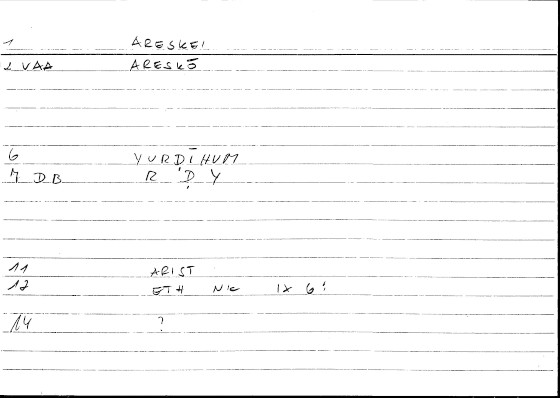 1 ARESKEI
2 VAA ARESKŌ
6 YURDĪHUM
7 DB R 'Ḍ Y
11 ARIST
12 ETH NIC IX 6:
14 ?